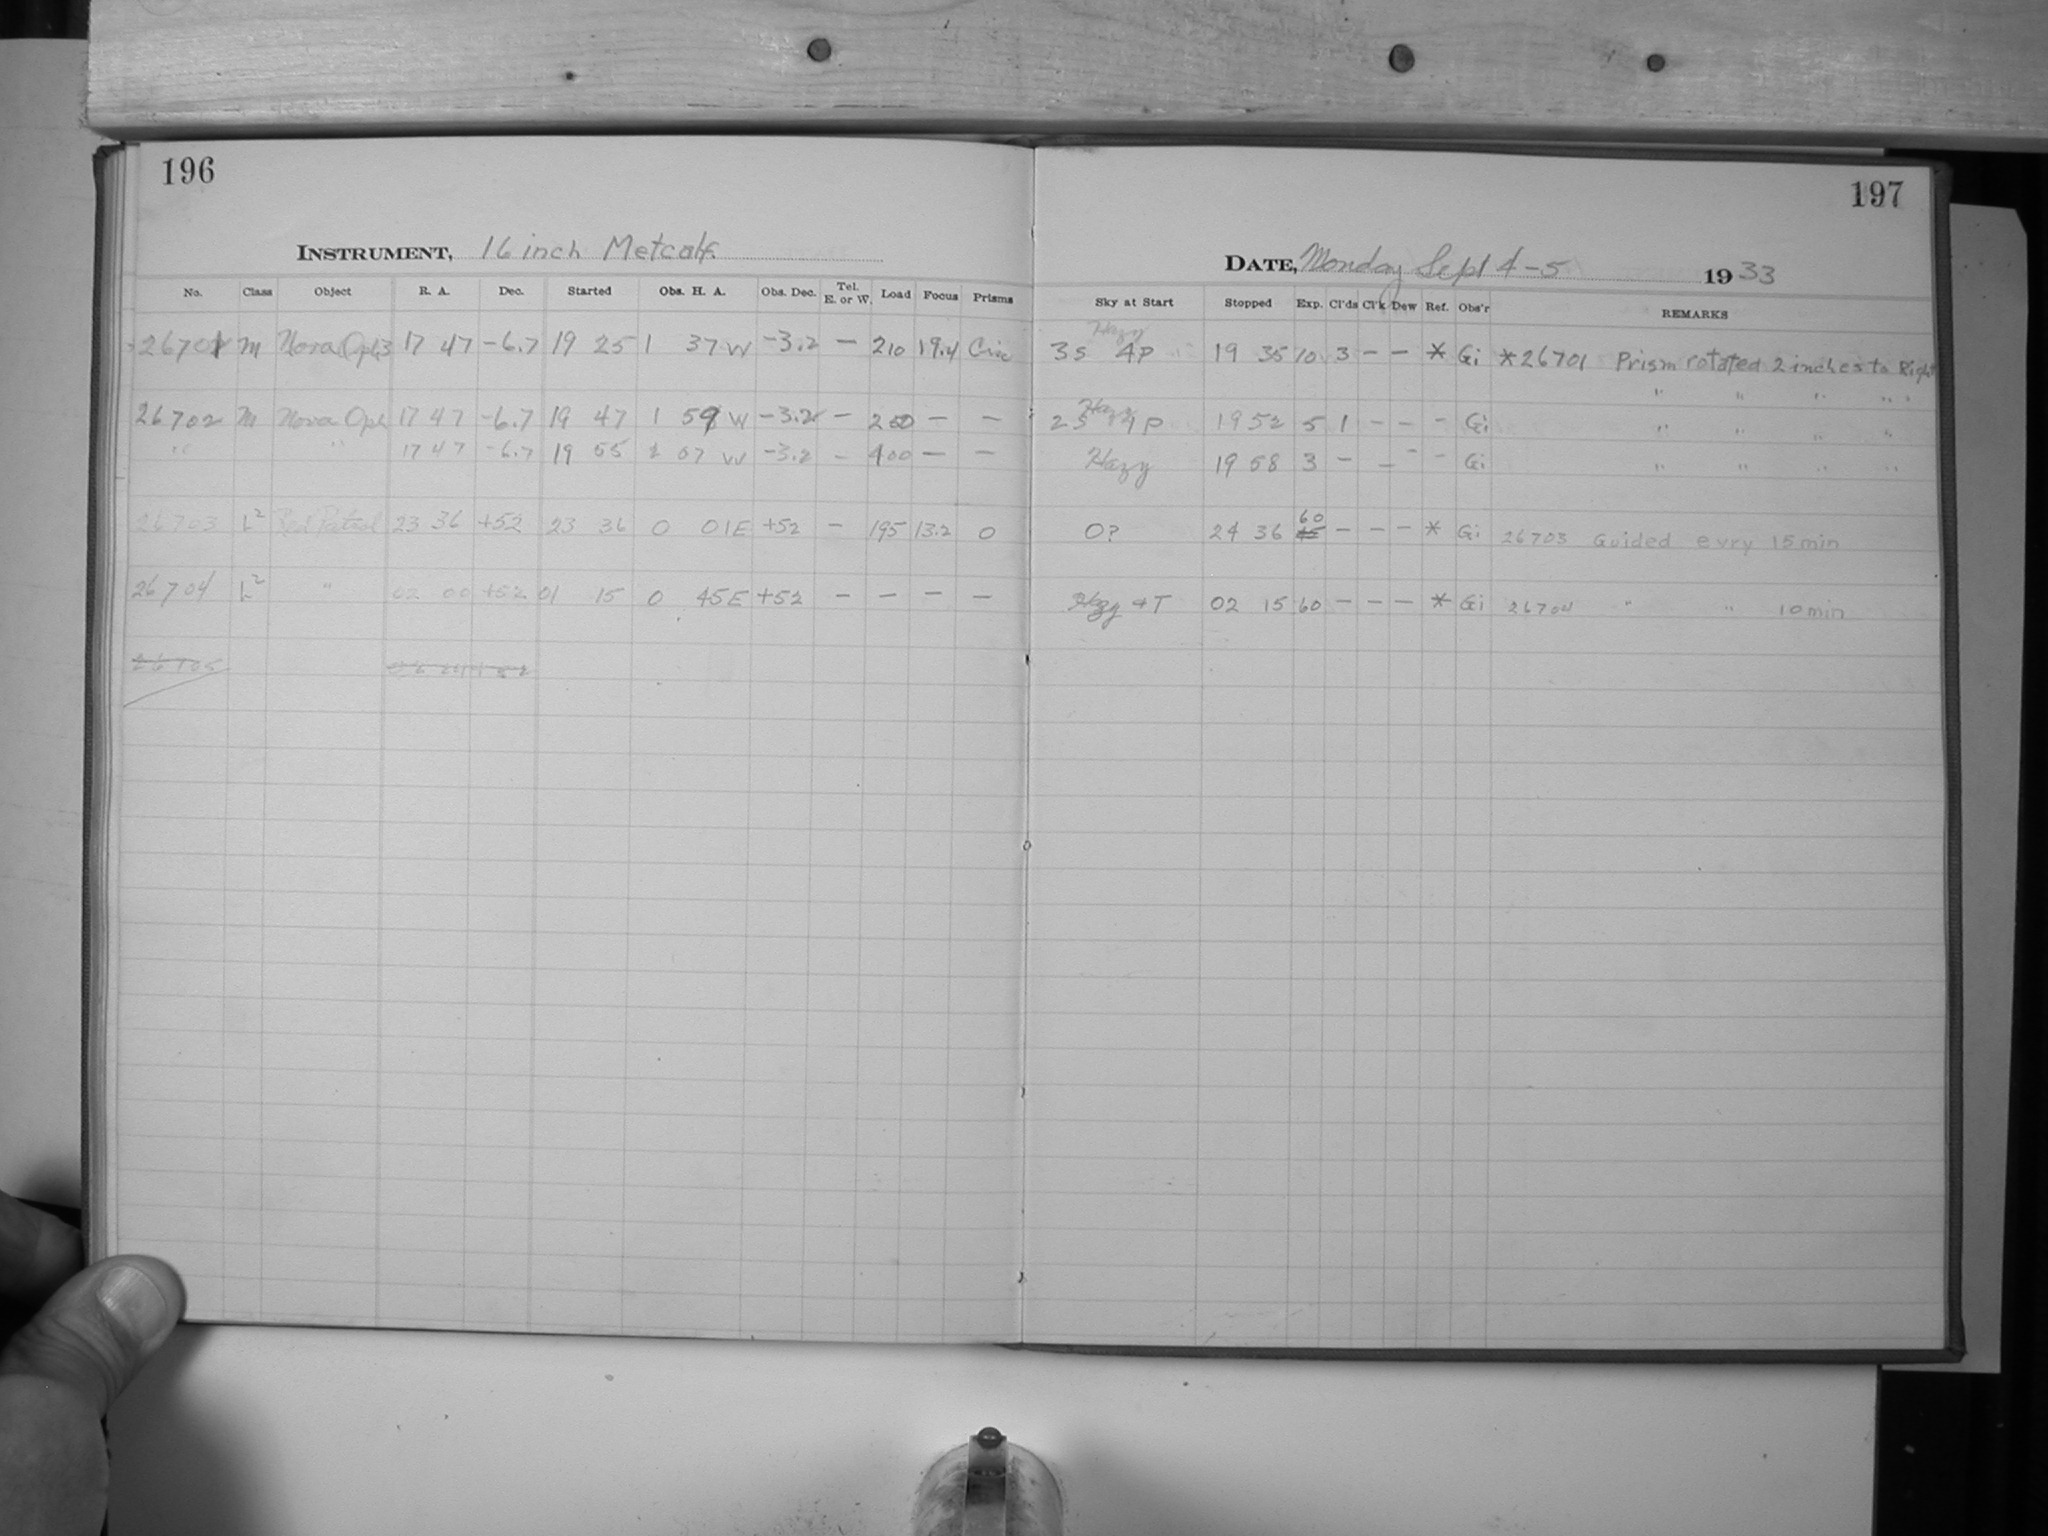 196
INSTRUMENT, 16 inch Metcalf
No. Class Object R. A. Dec. Started Obs. H. A. Obs. Dec. Tel. E. or W. Load Focus Prisms
26701 M Nova Oph3 17 47 -6.7 19 25 1 37 W -3.2 - 210 19.4 Circ
26702 M Nova Oph 17 47 -6.7 19 47 1 59 W -3.2 - 200 - -
" " 17 47 -6.7 19 55 2 07 W -3.2 - 400 - -
26703 L² Red Patrol 23 36 +52 23 36 0 01E +52 - 195 13.2 0
26704 L² " 02 00 +52 01 15 0 45E +52 - - - -
26705
197
DATE, Monday Sept 4-5 1933
Sky at Start Stopped Exp. Cl'ds Cl'k Dew Ref. Obs'r REMARKS
Hazy
3s 4P 19 35 10 3 - - * Gi *26701 Prism rotated 2 inches to Right
" " " "
Hazy
2s 4P 19 52 5 1 - - - Gi " " " "
Hazy 19 58 3 - - - - Gi " " " "
60
0? 24 36 - - - * Gi 26703 Guided evry 15 min
Hazy + T 02 15 60 - - - * Gi 26704 " " 10 min